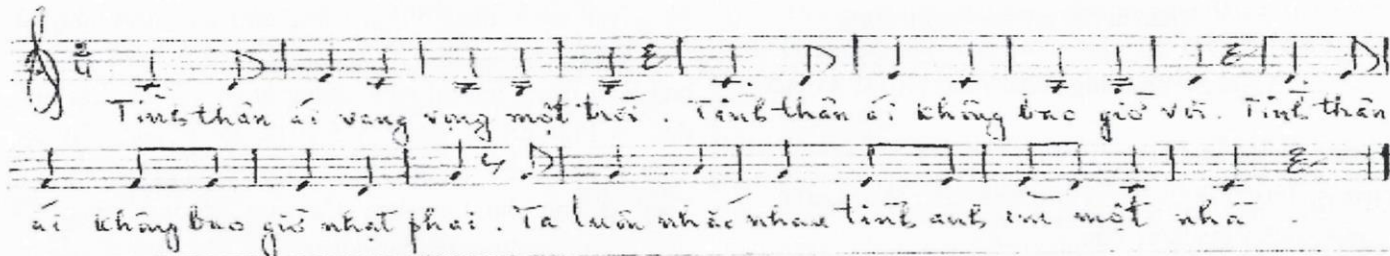 2
4
Tình thân ái vang vọng một trời. Tình thân ái không bao giờ vơi. Tình thân
ái không bao giờ nhạt phai. Ta luôn nhắc nhau tình anh em một nhà.